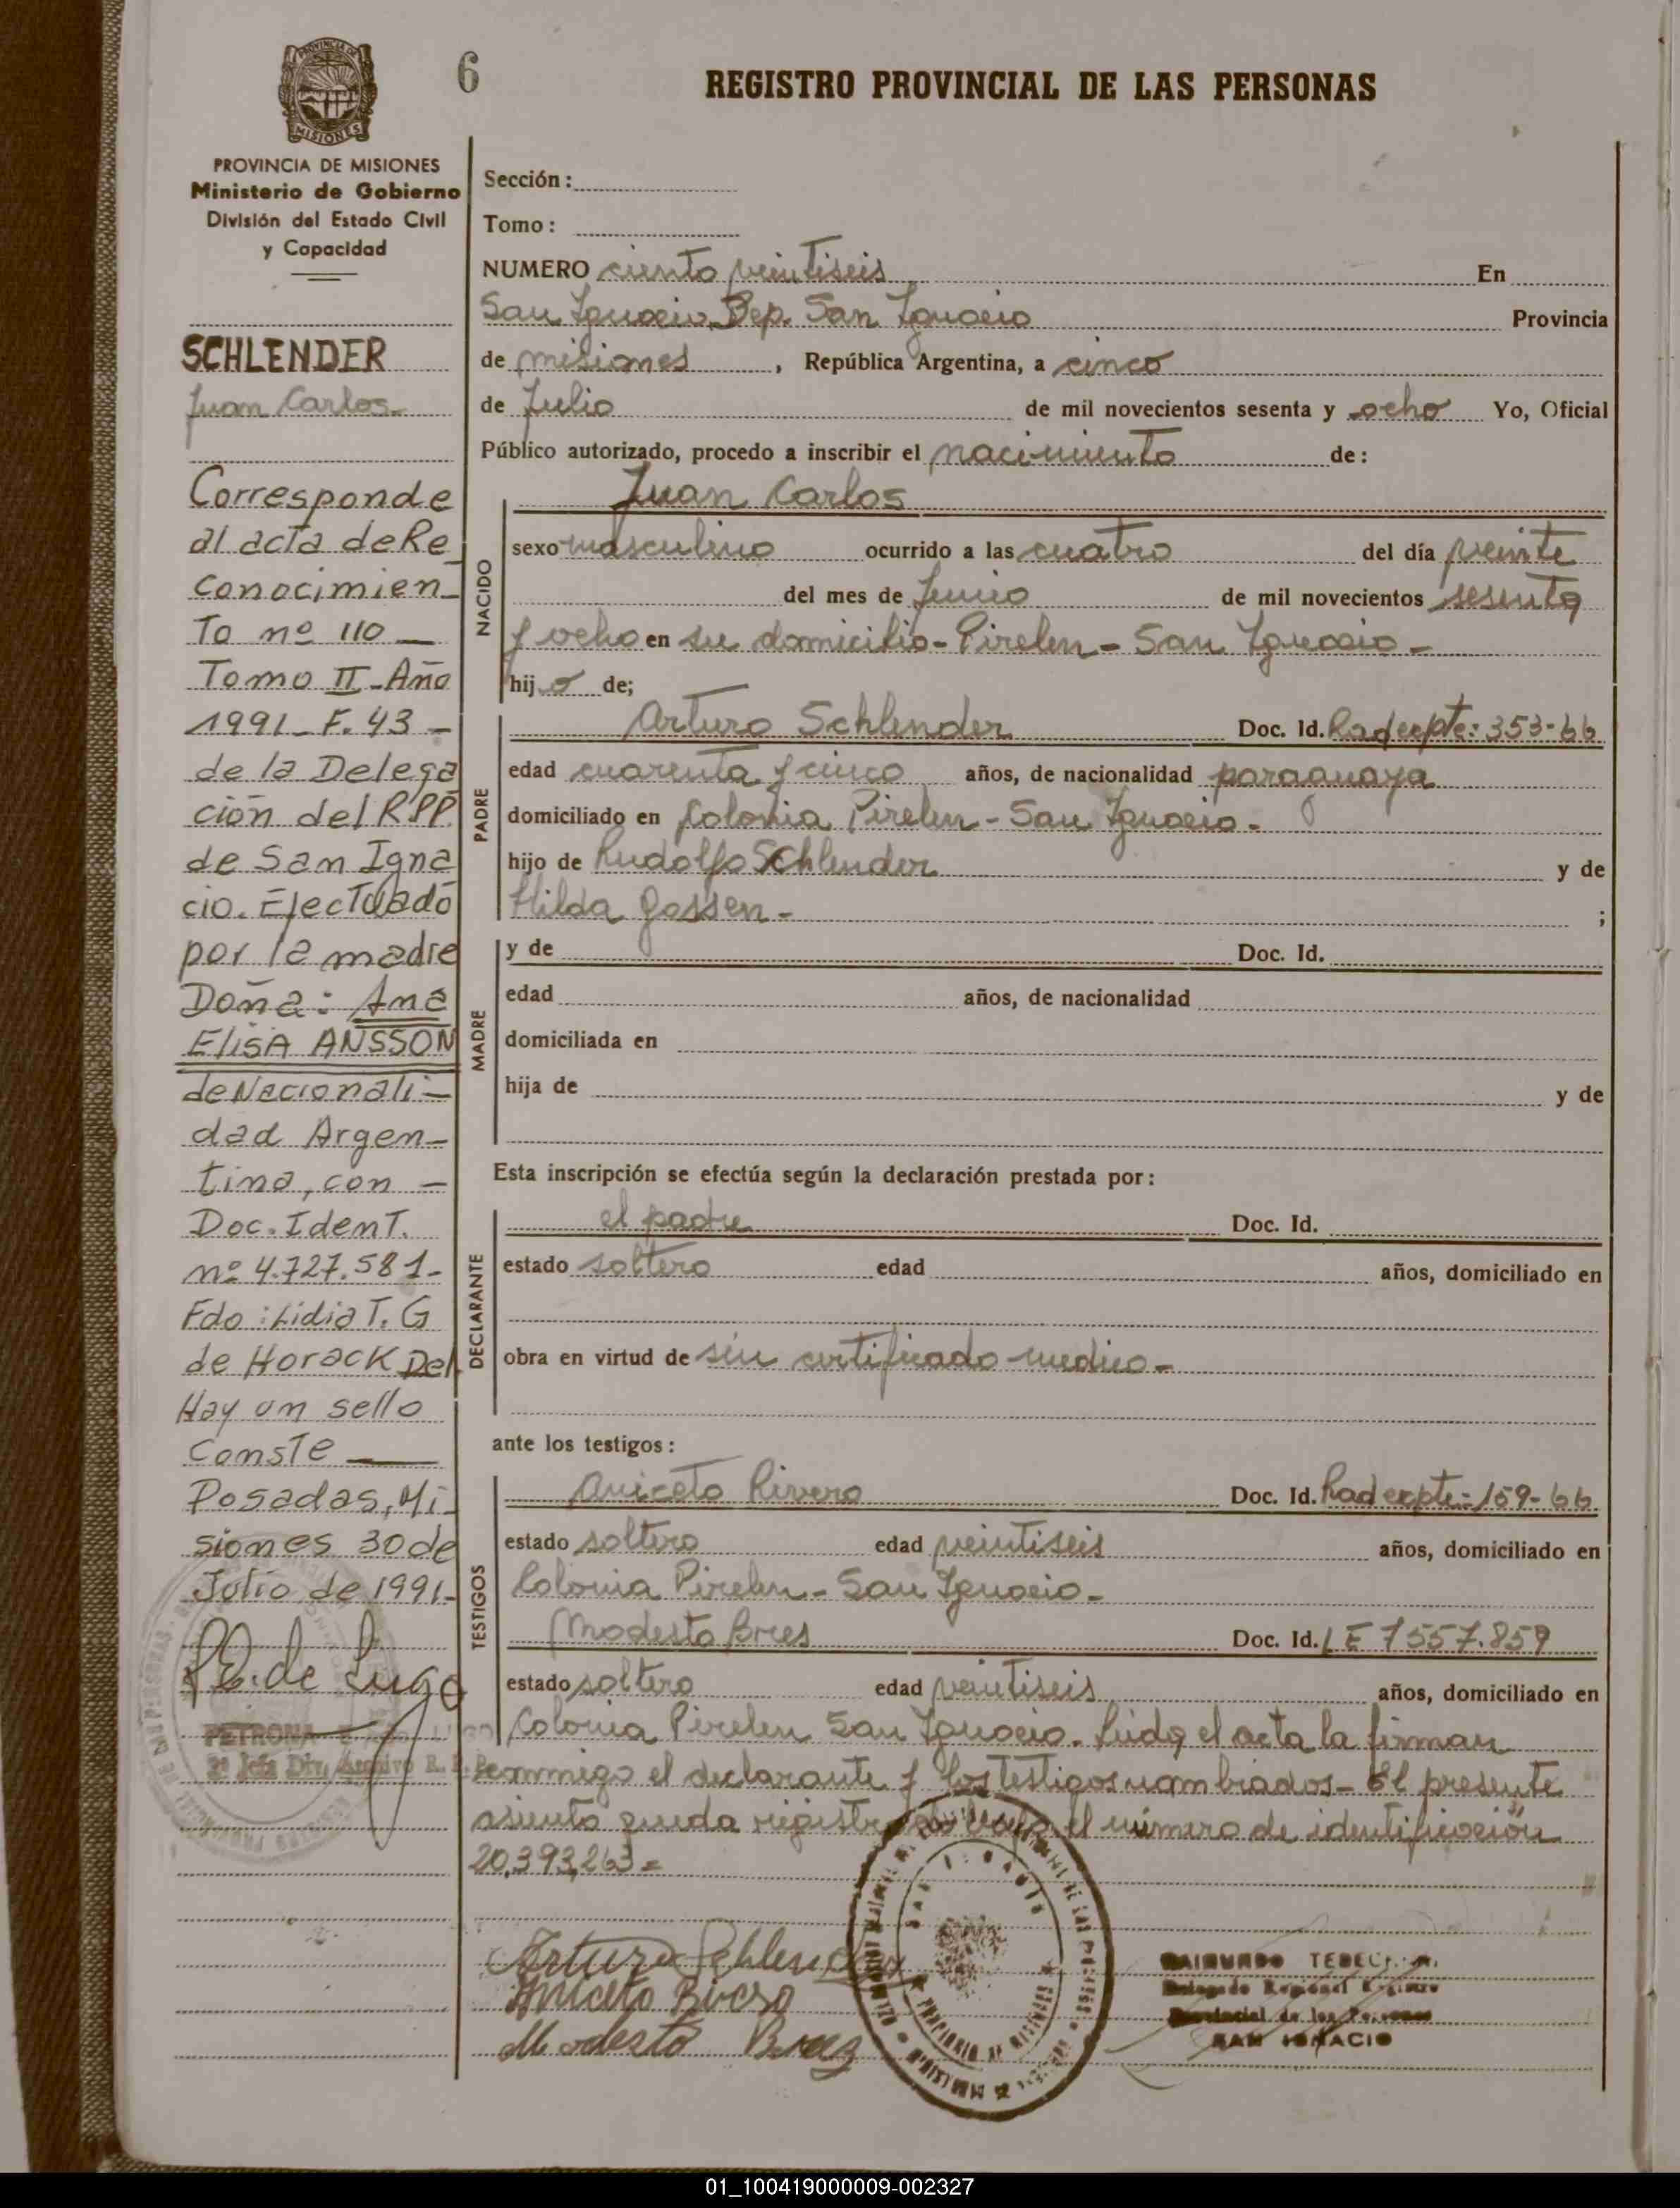 6
REGISTRO PROVINCIAL DE LAS PERSONAS
PROVINCIA DE MISIONES
MISIONES
PROVINCIA DE MISIONES
Ministerio de Gobierno
División del Estado Civil
y Capacidad
SCHLENDER
Juan Carlos
Corresponde
al acta de Re
conocimien_
To nº 110 _
Tomo II - Año
1991 - F. 43 -
de la Delega
ción del RPP.
de San Igna
cio. Efectuado
por la madre
Doña: Ana
Elisa ANSSON
de Nacionali-
dad Argen-
tina, con -
Doc. Ident.
nº 4.727.581-
Fdo: Lidia T. G
de Horack Del
Hay un sello
Conste
Posadas, Mi-
siones 30 de
Julio de 1991-
de Lugo
PETRONA E. de LUGO
2º Jefe Div. Archivo R. P. P.
Sección:
Tomo:
NUMERO ciento veintiseis En
San Ignacio Dep. San Ignacio Provincia
de misiones, República Argentina, a cinco
de Julio de mil novecientos sesenta y ocho Yo, Oficial
Público autorizado, procedo a inscribir el nacimiento de:
Juan Carlos
NACIDO
sexo masculino ocurrido a las cuatro del día veinte
del mes de Junio de mil novecientos sesenta
y ocho en su domicilio - Pirelen - San Ignacio -
hijo de;
PADRE
Arturo Schlender Doc. Id. Rad expte: 353-66
edad cuarenta y cinco años, de nacionalidad paraguaya
domiciliado en Colonia Pirelen - San Ignacio -
hijo de Rudolfo Schlender y de
Hilda Gossen - ;
MADRE
y de Doc. Id.
edad años, de nacionalidad
domiciliada en
hija de y de
Esta inscripción se efectúa según la declaración prestada por:
DECLARANTE
el padre Doc. Id.
estado soltero edad años, domiciliado en
obra en virtud de sin certificado medico -
ante los testigos:
TESTIGOS
Aniceto Rivero Doc. Id. Rad expte: 159-66
estado soltero edad veintiseis años, domiciliado en
Colonia Pirelen - San Ignacio -
Modesto Bres Doc. Id. L E 7557.859
estado soltero edad veintiseis años, domiciliado en
Colonia Pirelen San Ignacio. Leida el acta la firman
conmigo el declarante y los testigos nombrados - El presente
asiento queda registrado bajo el número de identificación
20,393,263 =
Arturo Schlender
Aniceto Rivero
Modesto
PROVINCIA DE MISIONES
RAIMUNDO
Delegado Regional Registro
Provincial de las Personas
SAN IGNACIO
01_100419000009-002327